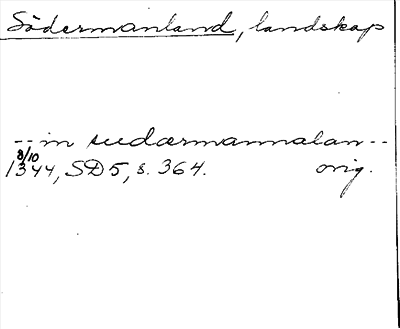 Södermanland, landskap
-- in sudærmannalan --
8/10
1344, SD5, s. 364. orig.